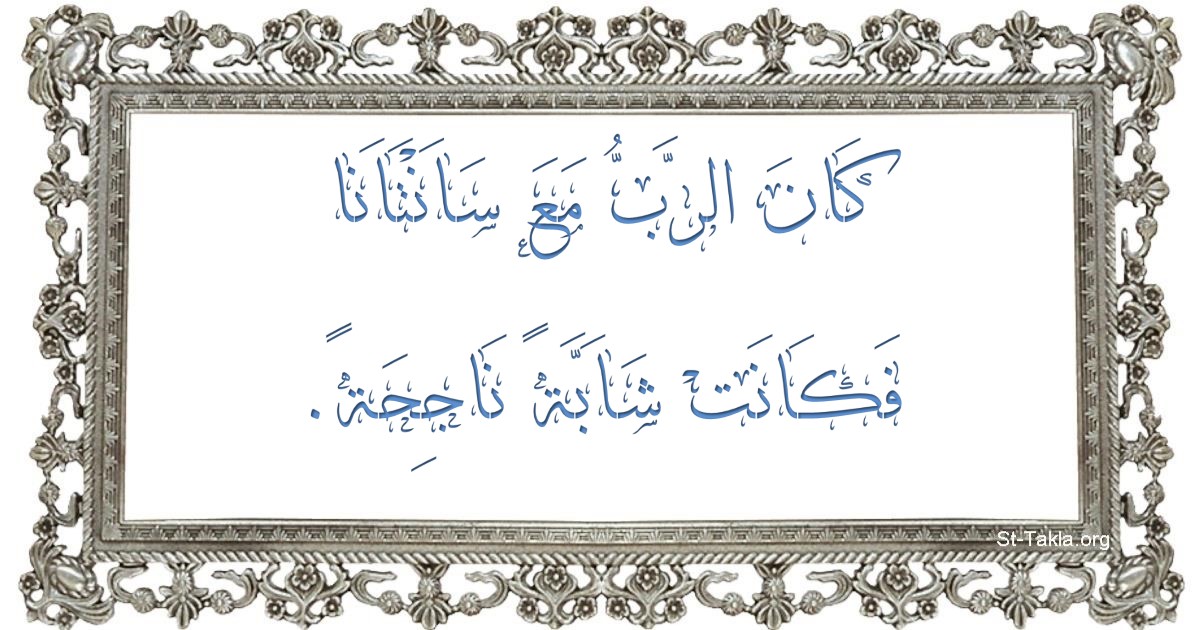 كَانَ الرَّبُّ مَعَ سَانْتَانَا
فَكَانَتْ شَابَّةً نَاجِحَةً.
St-Takla.org